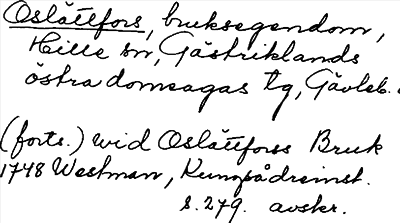 Oslättfors, bruksegendom,
Hille sn, Gästriklands
östra domsagas tg, Gävleb.
(forts.) wid Oslättforss Bruk
1748 Westman, Kungsådreinst.
s. 279. avskr.